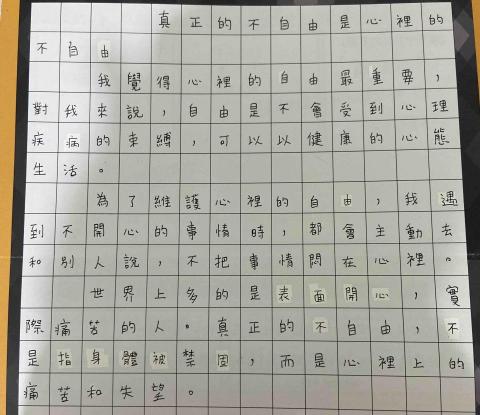 真正的不自由是心裡的
不自由
我覺得心裡的自由最重要，
對我來說，自由是不會受到心理
疾病的束縛，可以以健康的心態
生活。
為了維護心裡的自由，我遇
到不開心的事情時，都會主動去
和別人說，不把事情悶在心裡。
世界上多的是表面開心，實
際痛苦的人。真正的不自由，不
是指身體被禁固，而是心裡上的
痛苦和失望。